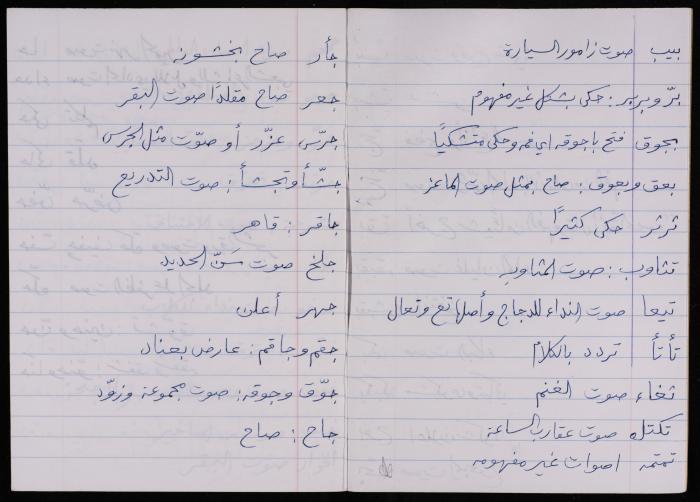 بيب صوت زامور السيارة
برّ وبربر : حكى بشكل غير مفهوم
بجوق فتح باجوقه اي فمه وحكى متشكيًا
بعق وبعوق : صاح بمثل صوت الماعز
ثرثر حكى كثيرًا
تثاوب : صوت المثاوب
تيعا صوت النداء للدجاج وأصلها تع وتعال
تأتأ تردد بالكلام
ثغاء صوت الغنم
تكتكه صوت عقارب الساعة
تمتمه اصوات غير مفهومه
جأر صاح بخشونه
جعر صاح مقلدًا صوت البقر
جرّس عزّر أو صوّت مثل الجرس
جشّأ وتجشأ : صوت التدريع
جاقر : قاهر
جلخ صوت سَنّ الحديد
جهر أعلن
جقم وجاقم : عارض بعناد
جوّق وجوقه : صوت مجموعة وزوّد
جاح : صاح